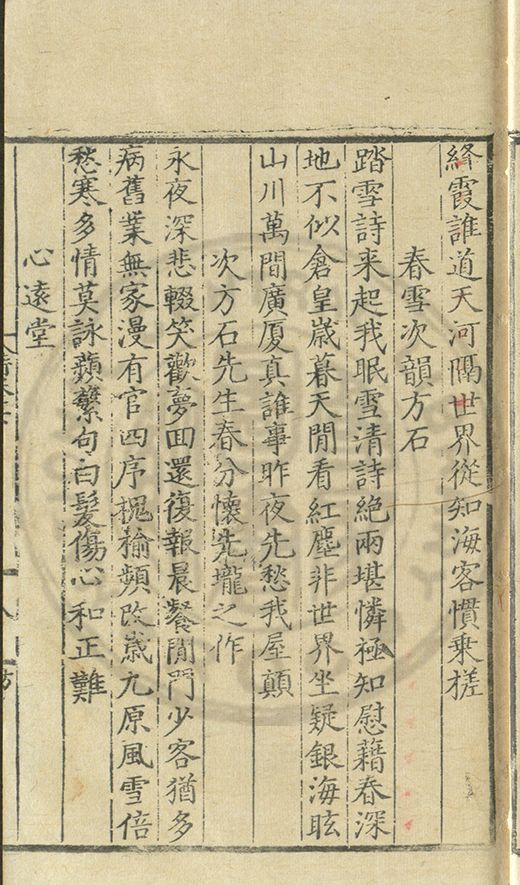 絳霞誰道天河隔世界從知海客慣乗槎
春雪次韻方石
踏雪詩来起我眠雪清詩絶兩堪憐極知慰藉春深
地不似倉皇歳暮天閒看紅塵非世界坐疑銀海眩
山川萬間廣厦真誰事昨夜先愁我屋顛
次方石先生春分懷先壠之作
永夜深悲輟笑歡夢囬還復報晨餐閒門少客猶多
病舊業無家漫有官四序槐榆頻改歳九原風雪倍
愁寒多情莫詠蘋蘩句白髮傷心和正難
心遠堂